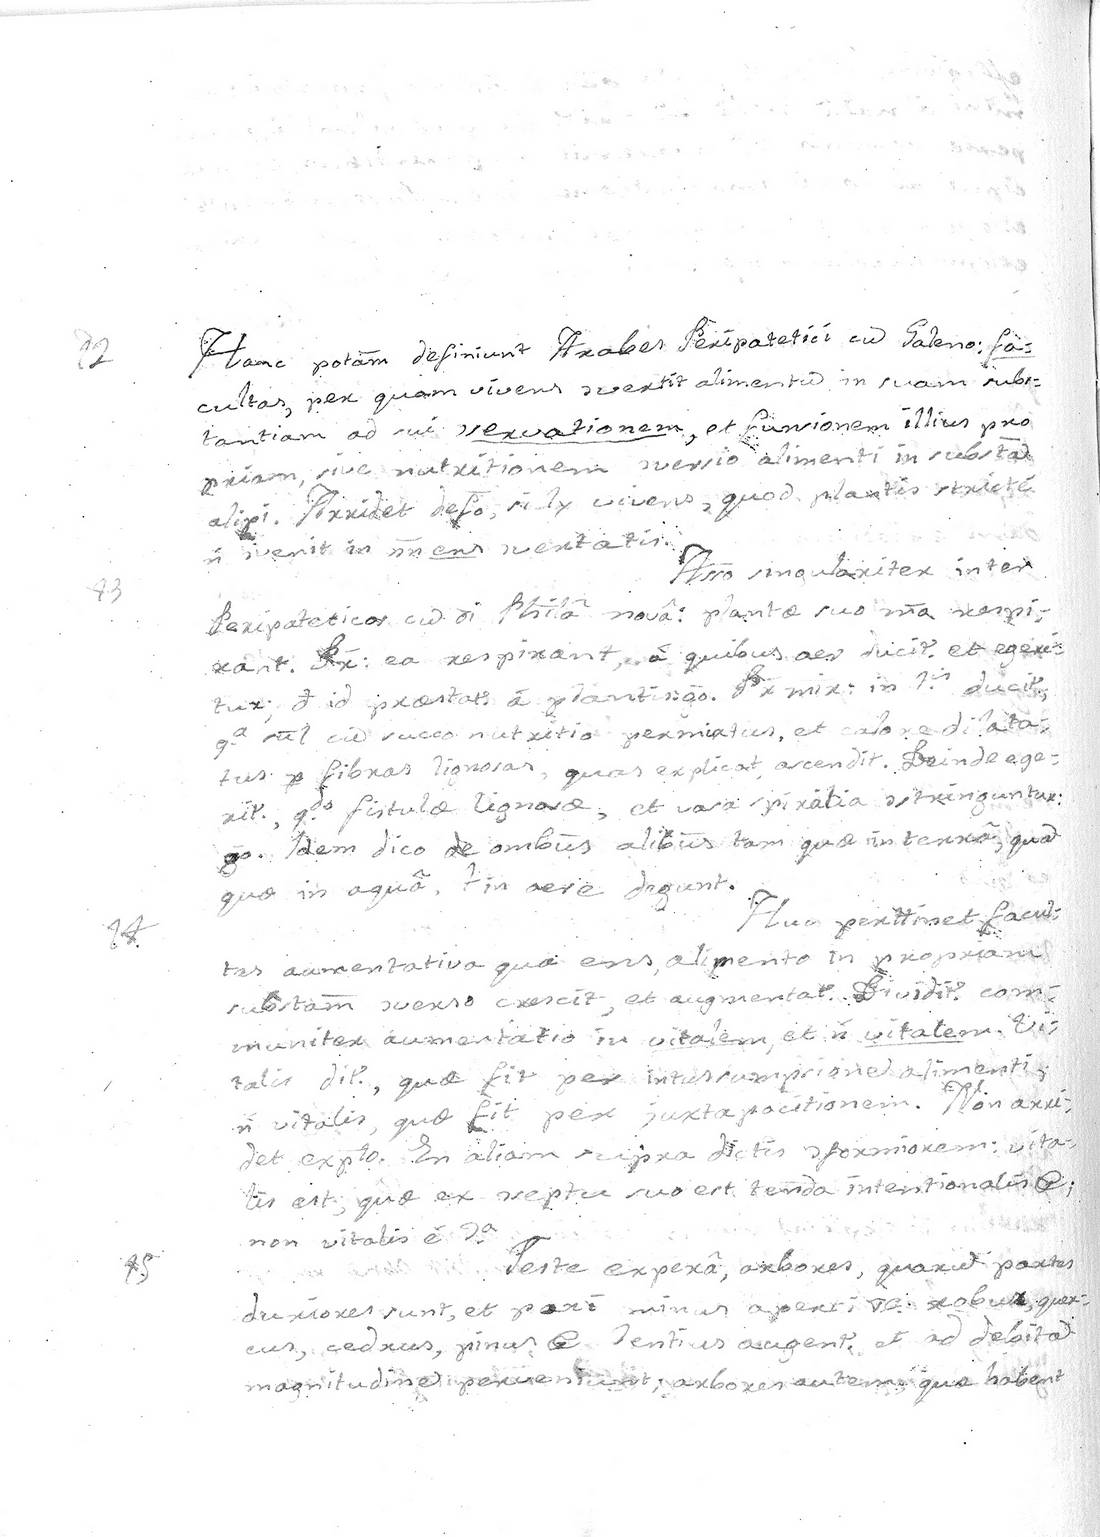 92 Hanc potām definiunt Arabes Peripatetici cū Galeno: fa-
cultas, per quam vivens ɔvertit alimentū in suam subs-
tantiam ad sui ɔservationem, et funsionem illius pro
priam, sive nutritionem ɔversio alimenti in substād
alipi. Arridet defo, si ly vivens, quod plantis stricté
ñ ɔvenit in m̄ ens vertatis.
93 Asso singulariter inter
Peripateticos cū oi Phīlā novâ: plantæ suo m̄a respi-
rant. Pr: ea respirant, á quibus aer ducit.r et egeri-
tur; sd id præstat.r á plantis: go. Pr mir: in 1.is ducit.r,
q.a sūl cū succo nutritio permixtus, et calore dilata-
tus p fibras lignosas, quas explicat, ascendit. Deinde ege-
rit.r, q.do fistulæ lignosæ, et vasa spiralia ɔstringuntur:
go. Idem dico de ombūs alibūs tam quæ in terrâ, quā
quæ in aquâ, t in aere degunt.
94 Huc perttinet facul-
tas aumentativa quæ ens, alimento in propriam
substām ɔverso crescit, et augmentat.r. Dividit.r com-
muniter aumentatio in vitalem, et ñ vitalem. Vi-
talis dit.r, quæ fit per intussumpsionē alimenti;
ñ vitalis, quæ fit per juxtapocitionem. Non arri-
det expło. En aliam supra dictis ɔformiorem: vita-
lis est, quæ ex ɔceptu suo est tenda intentionalis @;
non vitalis é ɔ.a
95 Teste experâ, arbores, quarū partes
duriores sunt, et pori minus aperti ve: robur, quer-
cus, cedrus, pinus @ lentius augent.r et ad debitā
magnitudinē perveniunt; arbores autem quæ habent